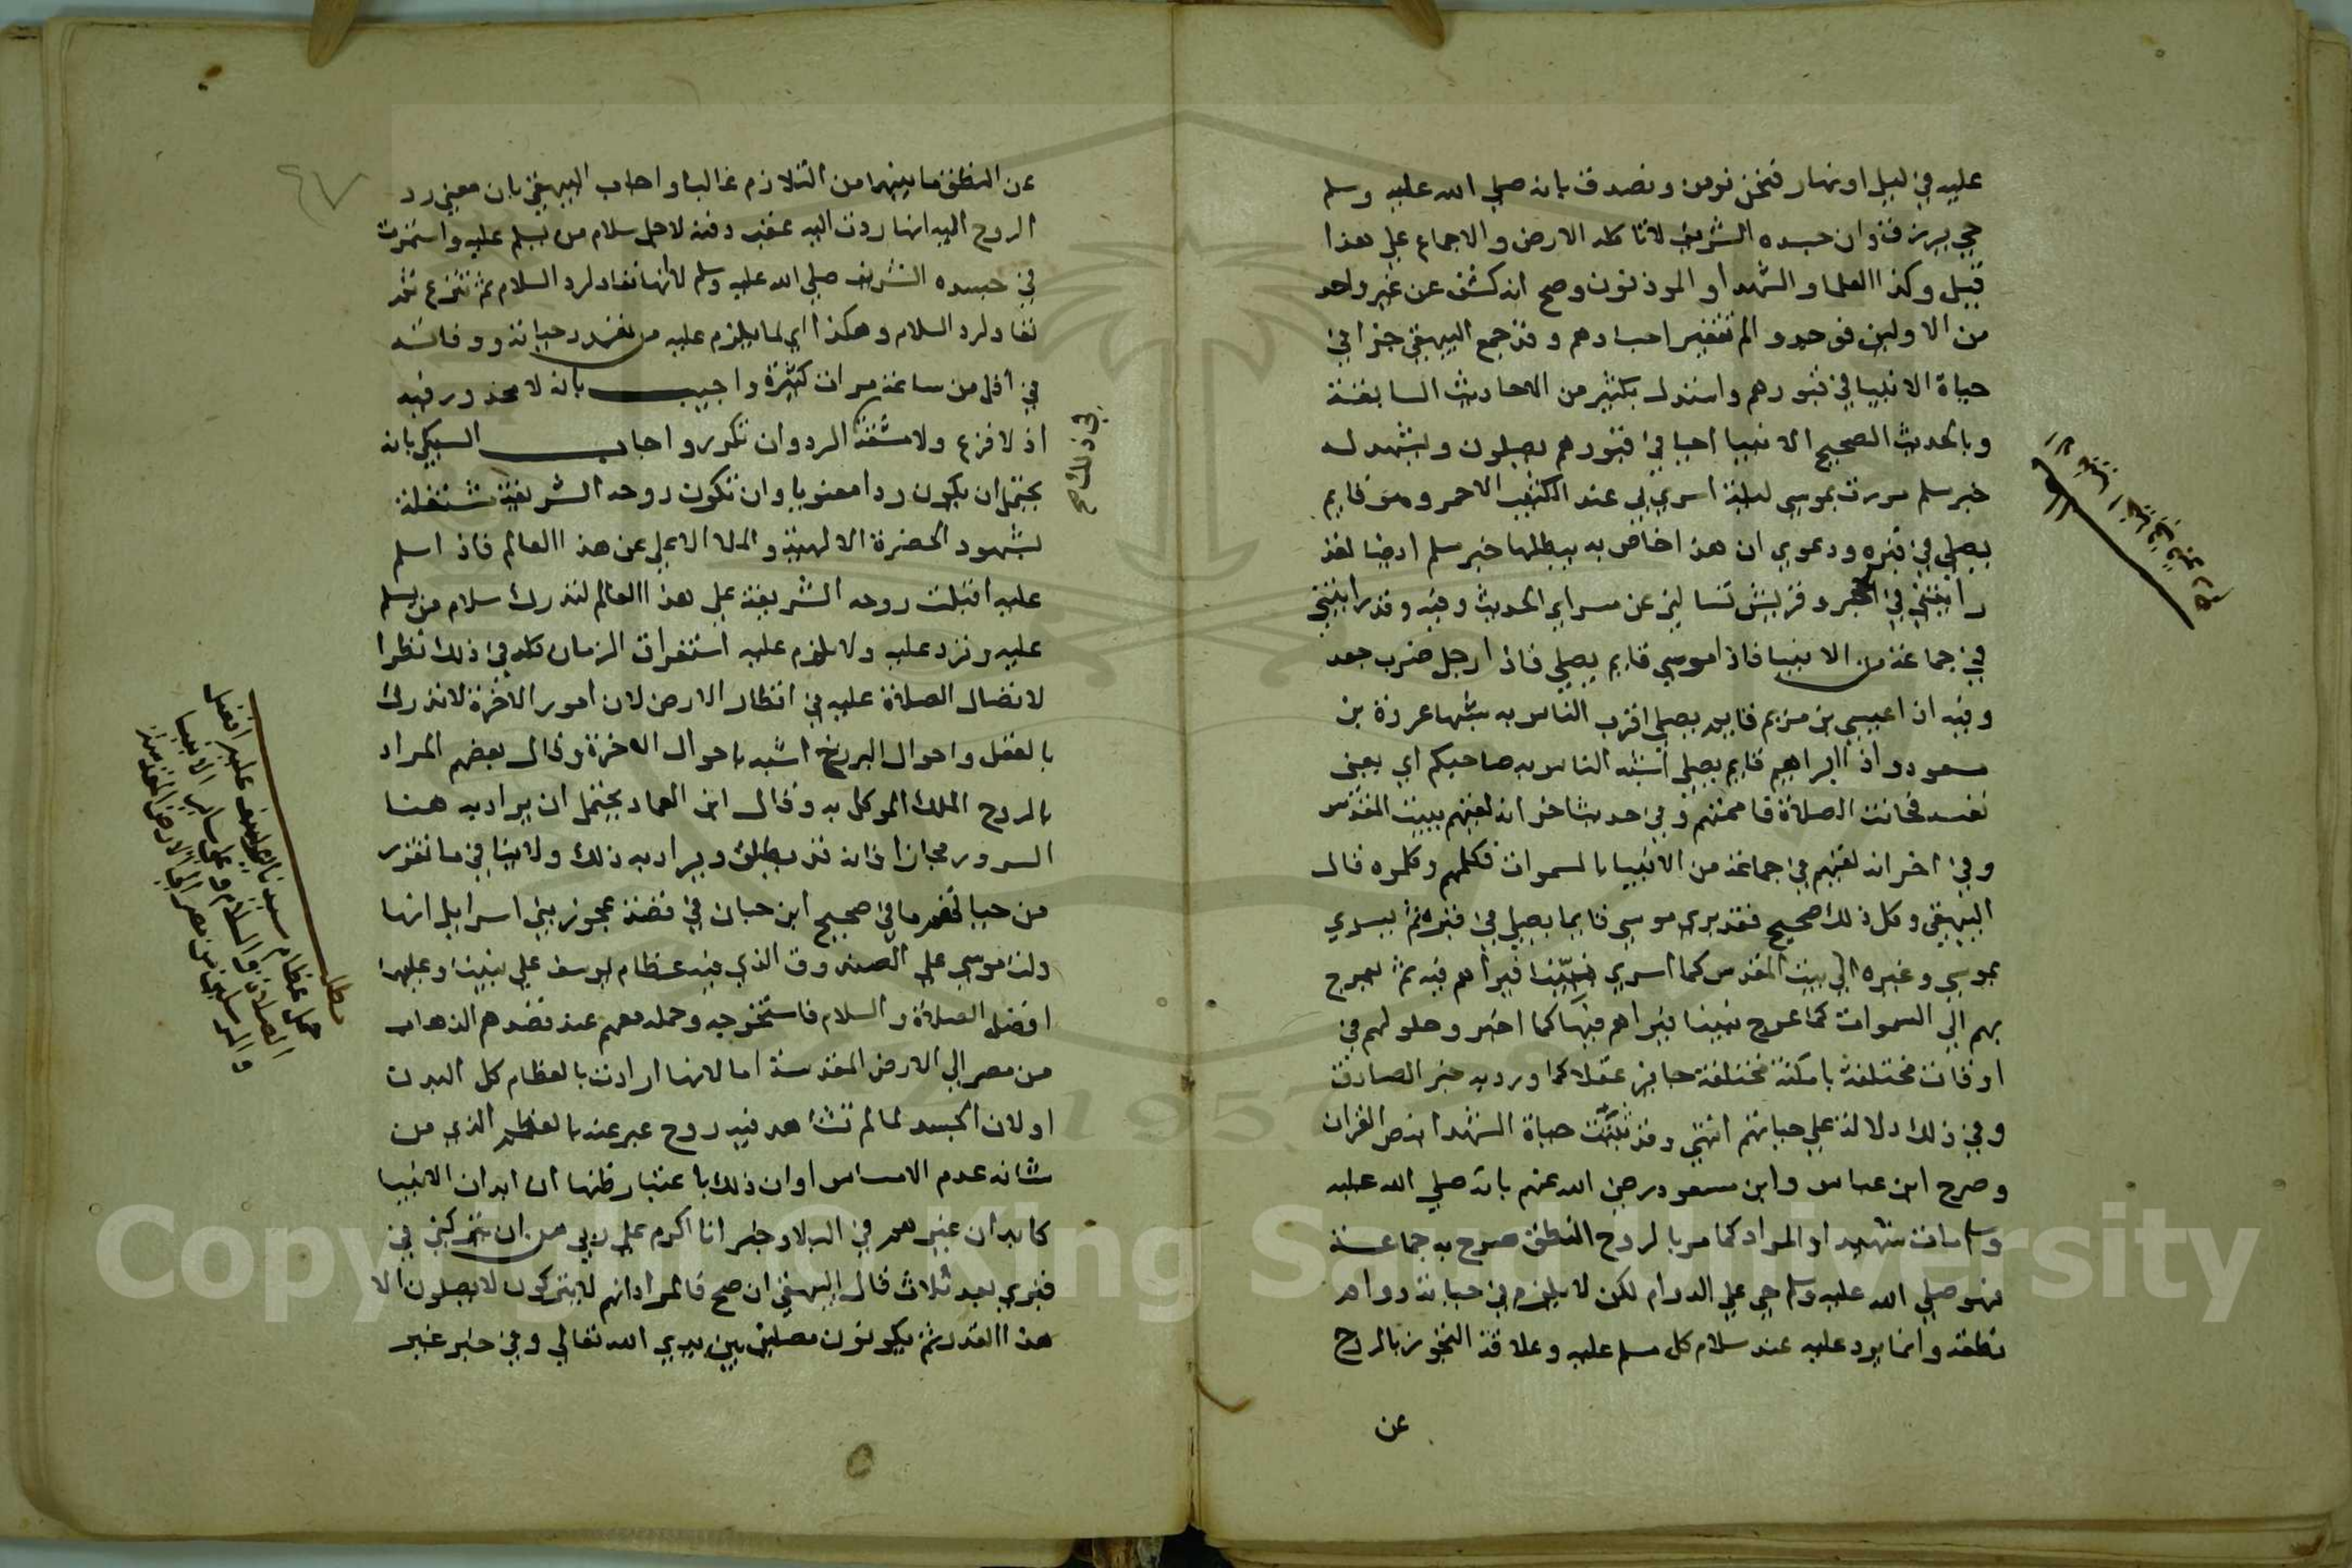 عليه في ليل او نهار فنحن نومن ونصدق بانه صلي الله عليه وسلم
حي يرزق وان جسده الشريف لا تاكله الارض والاجماع علي هذا
قيل وكذا العلما والشهدا والموذنون وصح انه كشف عن غير واحد
من الاولين فوجدوا لم تتغير اجسادهم وقد جمع البيهقي جزا في
حياة الانبيا في قبورهم واستدل بكثير من الاحاديث السابقة
وبالحديث الصحيح الانبيا احيا في قبورهم يصلون ويشهد له
خبر مسلم مررت بموسي ليلة اسري بي عند الكثيب الاحمر وهو قايم
يصلي في قبره ودعوي ان هذا خاص به يبطلها خبر مسلم ايضا لقد
رايتني في الحجر وقريش تسالني عن مسراي الحديث وفيه وقد رايتني
في جماعة من الانبيا فاذا موسي قايم يصلي فاذا رجل ضرب جعد
وفيه اذا عيسي بن مريم قايم يصلي اقرب الناس به شبها عروة بن
مسعود واذا ابراهيم قايم يصلي اشبه الناس به صاحبكم اي يعني
نفسه فحانت الصلاة فاممتهم وفي حديث اخر انه لقيهم ببيت المقدس
وفي اخر انه لقيهم في جماعة من الانبيا بالسموات فكلمهم وكلموه قال
البيهقي وكل ذلك صحيح فقد يري موسي قايما يصلي في قبره ثم يسري
بموسي وغيره الي بيت المقدس كما اسري نبينا فيراهم فيه ثم يعرج
بهم الي السموات كما عرج نبينا فيراهم فيها كما اخبر وحلولهم في
اوقات مختلفة بامكنة مختلفة جايز عقلا كما ورد به خبر الصادق
وفي ذلك دلالة علي حياتهم انتهي وقد ثبتت حياة الشهدا بنص القران
وصرح ابن عباس وابن مسعود رضي الله عنهم بانه صلي الله عليه
وسلم مات شهيدا والمراد كما مر بالروح النطق صرح به جماعة
فهو صلي الله عليه وسلم حي علي الدوام لكن لا يلزم في حياته دوام
نطقه وانما يرد عليه عند سلام كل مسلم عليه وعلاقة التجوز بالروح
عن
عن النطق ما بينهما من التلازم غالبا واجاب البيهقي بان معني رد
الروح اليه انها ردت اليه عقب دفنه لاجل سلام من يسلم عليه واستمرت
في جسده الشريف صلي الله عليه وسلم لا انها تعاد لرد السلام ثم تنزع ثم
تعاد لرد السلام وهكذا اي لما يلزم عليه من تعدد حياته ووفاته
في اقل من ساعة مرات كثيرة واجيب بانه لا محذور فيه
اذ لا فزع ولا مشقة الرد وان تكرر واجاب السبكي بانه
في ذلك صح
يحتمل ان يكون ردا معنويا وان تكون روحه الشريفة مشتغلة
بشهود الحضرة الالهية والملا الاعلي عن هذا العالم فاذا سلم
عليه اقبلت روحه الشريفة علي هذا العالم لتدرك سلام من يسلم
عليه وترد عليه ولا يلزم عليه استغراق الزمان كله في ذلك نظرا
لاتصال الصلاة عليه في اقطار الارض لان امور الاخرة لا تدرك
بالعقل واحوال البرزخ اشبه باحوال الاخرة وقال بعضهم المراد
بالروح الملك الموكل به وقال ابن العماد يحتمل ان يراد به هنا
السرور مجازا فانه قد يطلق ويراد به ذلك ولا ينافي ما تقرر
من حياتهم ما في صحيح ابن حبان في قصة عجوز بني اسرايل انها
دلت موسي علي الصندوق الذي فيه عظام يوسف علي نبينا وعليهما
افضل الصلاة والسلام فاستخرجه وحمله معهم عند قصدهم الذهاب
من مصر الي الارض المقدسة اما لانها ارادت بالعظام كل البدن
او لان الجسد لما لم تشاهد فيه روح عبر عنه بالعظم الذي من
شانه عدم الاحساس او ان ذلك باعتبار ظنها ان ابدان الانبيا
كابدان غيرهم في البلا وخبر انا اكرم علي ربي من ان يتركني في
قبري بعد ثلاث قال البيهقي ان صح فالمراد انهم لا يتركون لا يصلون الا
هذا القدر ثم يكونون مصلين بين يدي الله تعالي وفي خبر غير
مطل
حمل عظام سيدنا يوسف عليه افضل
الصلاة والسلام وعلي ساير الانبيا
والمرسلين من مصر الي الارض المقدسة
Copyright © King Saud University
1957